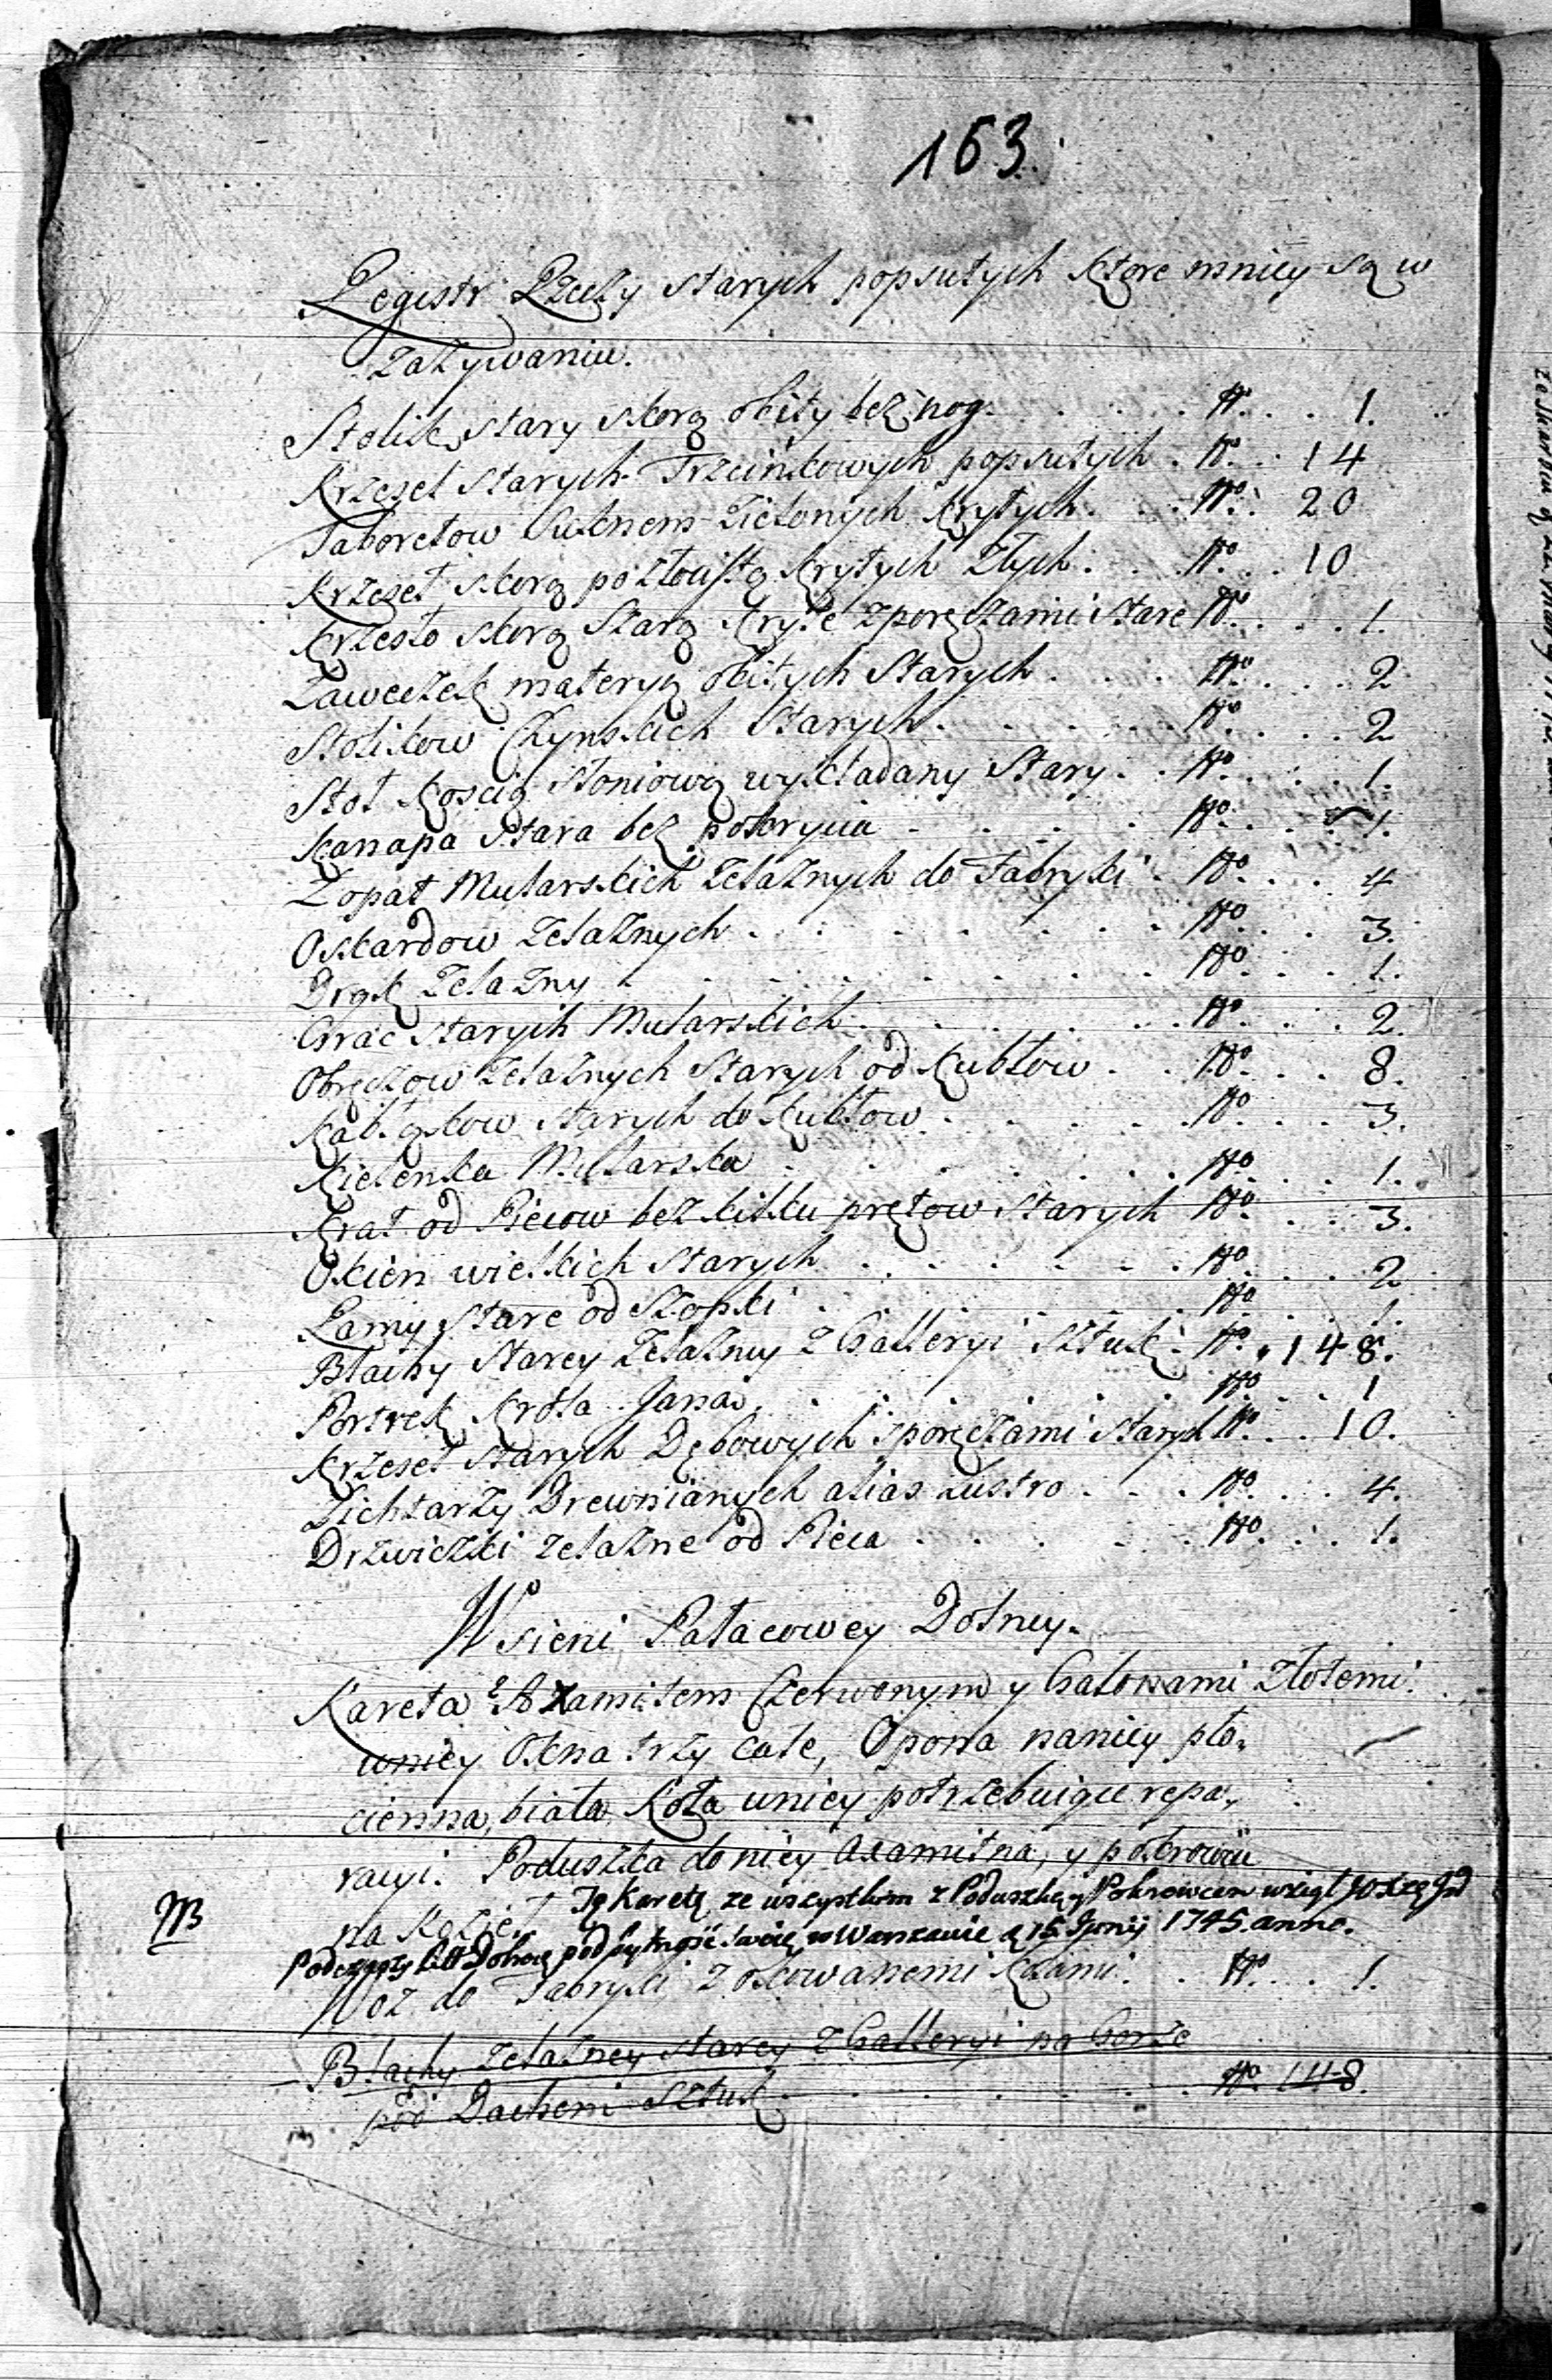 163.
Regestr Rzeczy starych popsutych ktore mniey są w
zażywaniu.
Stolik stary skorą obity bez nog. No. 1.
Krzeseł starych Trzcinkowych popsutych No. 14
Taboretow Suknem Zielonych krytych No. 20
Krzeseł skorą pozłocistą krytych złych No. 10
Krzesło skorą starą kryte z poręczami stare No. 1.
Ławeczek materyą obitych starych No. 2
Stolikow Chynskich starych No. 2
Stoł kością słoniową wykładany stary No. 1.
Kanapa stara bez pokrycia No. 1.
Łopat Mularskich żelaznych do Fabryki No. 4
Oskardow żelaznych No. 3.
Drąk żelazny No. 1.
Grac starych Mularskich No. 2.
Obręczow żelaznych starych od kubłow No. 8.
Kabłąkow starych do kubłow No. 3.
Kielenka Mularska No. 1.
Krat od Piecow bez kilku prętow starych No. 3.
Okien wielkich starych No. 2
Ramy stare od Szopki No. 1.
Blachy starey żelazney z Galleryi sztuk No. 148.
Portret Krola Jana No. 1
Krzeseł starych Dębowych z poręczami starych No. 10.
Lichtarzy Drewnianych alias Lustro No. 4.
Drzwiczki żelazne od Pieca No. 1.
W sieni Pałacowey Dolney.
Kareta z Axamitem Czerwonym y Galonami złotemi
u niey okna trzy całe, Opona na niey płó-
cienna, biała, koła u niey potrzebuiące repa-
racyi. Poduszka do niey axamitna, y pokrowiec
na Kozieł
NB Tę Karetę ze wszystkim z Poduszką y Pokrowcem wziął
Podczaszy w Warszawie d 15 Junij 1745 anno.
Woz do Fabryki z okowanemi kołami No. 1.
Blachy żelazney starey z Galleryi na Gorze
pod Dachem sztuk No. 148.